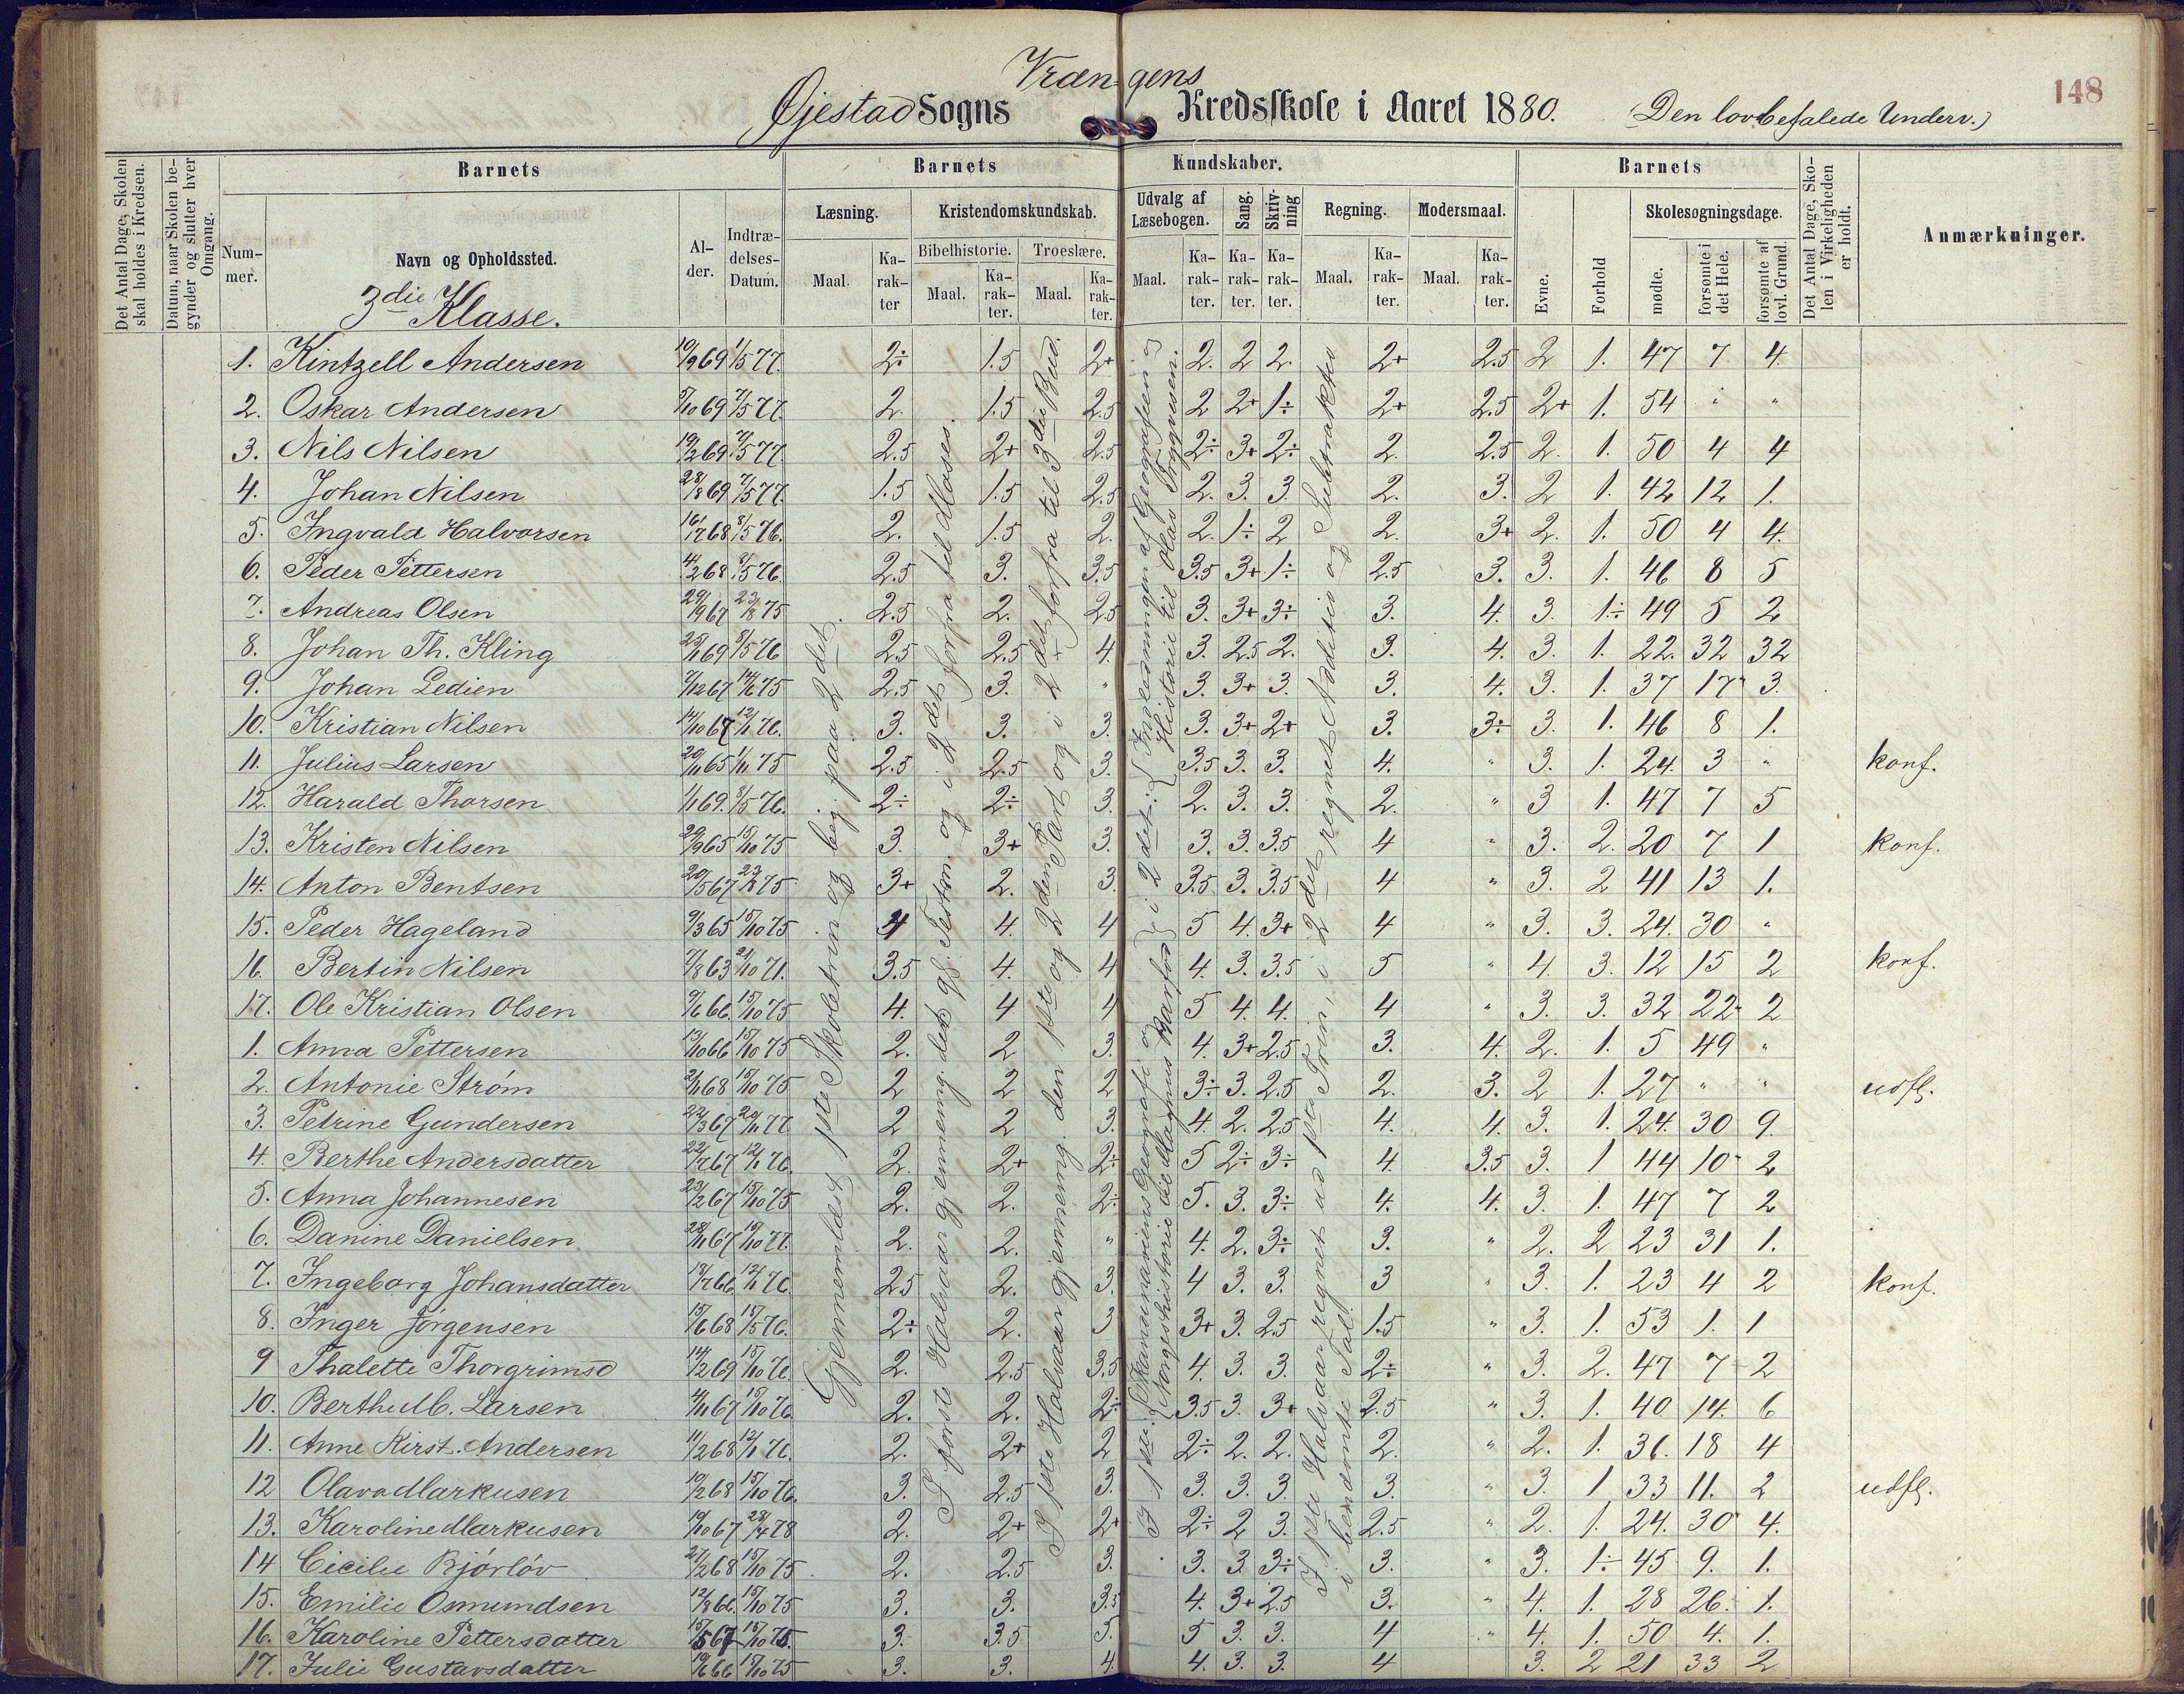 148
Vrængens
Øjestad Sogns Kredsskole i Aaret 1880. (Den lovbefalede Underv.)
Det Antal Dage, Skolen skal holdes i Kredsen.
Datum, naar Skolen begynder og slutter hver Omgang.
Barnets
Barnets Kundskaber.
Barnets
Det Antal Dage, Skolen i Virkeligheden er holdt.
Anmærkninger.
Nummer.
Navn og Opholdssted.
Alder.
Indtrædelses-Datum.
Læsning.
Kristendomskundskab.
Bibelhistorie.
Troeslære.
Udvalg af Læsebogen.
Sang.
Skrivning
Regning.
Modersmaal.
Evne.
Forhold
Skolesøgningsdage.
mødte.
forsømte i det Hele.
forsømte af lovl. Grund.
Maal. Karakter Maal. Karakter. Maal. Karakter. Maal. Karakter. Karakter. Karakter. Maal. Karakter. Maal. Karakter.
3die Klasse.
1. Kintzell Andersen 19/9 69 1/5 77. 2÷ 1.5 2+ 2. 2 2. 2+ 2.5 2 1. 47 7 4.
2. Oskar Andersen 5/10 69 7/5 77. 2. 1.5 2.5 2 2+ 1÷ 2+ 2.5 2+ 1. 54 " "
3. Nils Nilsen 19/2 69 7/5 77 2.5 2+ 2.5 2÷ 3+ 2÷ 2. 2.5 2. 1. 50 4 4
4. Johan Nilsen 28/8 69 7/5 77. 1.5 1.5 2.5 2. 3. 3. 2. 3. 2 1. 42 12 1.
5. Ingvald Halvorsen 16/7 68 8/5 76. 2. 1.5 2. 2. 1÷ 2 2. 3+ 2. 1. 50 4 4.
6. Peder Pettersen 4/2 68 8/5 76. 2.5 3. 3.5 3.5 3+ 1÷ 2.5 3. 3. 1. 46 8 5
7. Andreas Olsen 29/9 67 23/8 75 2.5 2. 2.5 3. 3+ 3÷ 3. 4. 3. 1÷ 49 5 2
8. Johan Th. Kling 25/1 69 8/5 76 2.5 2.5 4. 3. 2.5 2. 3. 4. 3. 1. 22. 32 32
9. Johan Ledien 7/12 67 14/6 75 2.5 3. " 3. 3+ 3. 3. 4. 3. 1. 37 17 3.
10. Kristian Nilsen 14/10 67 12/1 76. 3. 3. 3. 3. 3+ 2+ 3. 3÷ 3. 1. 46 8 1.
11. Julius Larsen 20/11 65 1/11 75 2.5 2.5 3. 3.5 3. 3. 4. " 3. 1. 24. 3 " konf.
12. Harald Thorsen 1/1 69. 8/5 76. 2÷ 2÷ 3. 2. 3. 3. 2. " 3 1. 47 7 5
13. Kristen Nilsen 29/9 65 15/10 75 3. 3+ 3. 3. 3. 3.5 4 " 3. 2. 20 7 1 konf.
14. Anton Bentsen 20/5 67 23/8 75 3+ 2. 3. 3.5 3. 3.5 4 " 3. 2 41 13 1.
15. Peder Hageland 9/3 65 15/10 75 4 4. 4 5 4. 3+ 4 " 3. 3. 24. 30 "
16. Bertin Nilsen 7/8 63 21/10 71. 3.5 4. 4 4. 3. 3.5 5 " 4. 3. 12 15 2 konf.
17. Ole Kristian Olsen 9/6 66. 15/10 75 4. 4 4 5 4. 4. 4 " 3. 3. 32 22 2
1. Anna Pettersen 13/10 66 15/10 75 2. 2 3. 4. 3+ 2.5 3. 4. 2. 1. 5 49 "
2. Antonie Strøm 2/11 68 15/10 75 2 2 2 3÷ 3. 2.5 2. 3. 2 1. 27 " " udfl.
3. Petrine Gundersen 22/3 67 20/11 77 2 2 3. 4. 2. 2.5 4. 4. 3. 1. 24. 30 9.
4. Berthe Andersdatter 22/7 67 12/1 76. 2. 2+ 2÷ 5 2÷ 3÷ 4. 3.5 3. 1 44 10 2
5. Anna Johannesen 23/2 67 15/10 75 2. 2. 2÷ 5. 3. 3÷ 4. 4. 3. 1. 47 7 2
6. Danine Danielsen 28/11 67 19/10 77. 2. 2. " 4. 2. 3÷ 3. " 2. 2 23 31 1.
7. Ingeborg Johansdatter 13/7 66. 12/1 76. 2.5 2. 3. 4 3. 3. 3 " 3. 1. 23 4 2 konf.
8. Inger Jörgensen 15/6 68 15/5 76. 2÷ 2. 3 3+ 3. 2.5 1.5 " 3. 1. 53 1. 1
9 Thalette Thorgrimsd 14/2 69 15/10 76. 2. 2.5 3.5 4. 3. 3. 2÷ " 3. 2. 47 7 2
10. Berthe M. Larsen 4/11 67 15/10 76. 2. 2. 2÷ 3.5 3. 3+ 2.5 " 3. 1. 40 14. 6
11. Anne Kirst. Andersen 11/2 68 12/1 76. 2. 2+ 2 2÷ 2. 2. 2. " 2. 1. 36. 18 4
12 Olava Markusen 19/2 68 15/10 76. 3. 2.5 3. 3. 3. 3. 3. " 3. 1 33 11. 2 udfl.
13. Karoline Markusen 19/10 67 28/4 78 2. 2+ 2+ 2÷ 2 3. 2.5 " 2. 1. 24. 30 4.
14 Cicilie Bjórlóv 27/2 68 15/10 75 2. 2.5 3. 3. 3. 3÷ 3. " 3. 1÷ 45 9. 1.
15. Emilie Osmundsen 12/8 66. 15/10 75 3. 3. 3.5 4. 3+ 2.5 3. " 4. 1. 28 26. 1.
16. Karoline Pettersdatter 15/5 67 15/10 75. 3. 3.5 5. 5 3. 3. 4 " 4. 1. 50 4. 1.
17. Julie Gustavsdatter 19/6 66 15/10 75 3. 3. 4. 4. 3. 3. 4 3. 2 21 33 2
Gjennemlæst 1ste Skoletrin og beg. paa 2det.
I første Halvaar gjennemg. det gl. Testm. og i 2det forfra til Moses.
I 1ste Halvaar gjennemg. den 1ste og 2den Part og i 2det forfra til 3die Bud.
I 1ste: {Skandinaviens Geografi og Norgeshistorie til Magnus Barfod} i 2det: {Indledningen af Geografien og Historie til Olav Trygvesen.
I 1ste Halvaar regnet ud 1ste Trin, i 2det regnet Additio og Subtraktio i benævnte Tal.